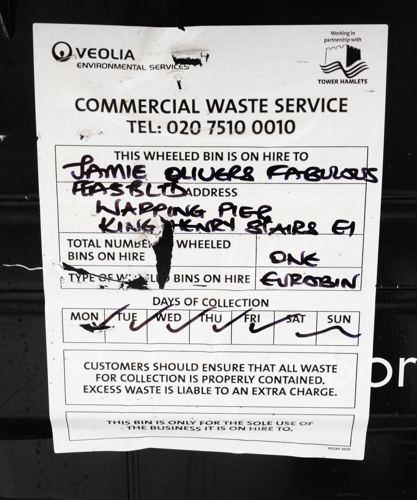 VEOLIA
ENVIRONMENTAL SERVICES
Working in
partnership with
TOWER HAMLETS
COMMERCIAL WASTE SERVICE
TEL: 020 7510 0010
THIS WHEELED BIN IS ON HIRE TO
JAMIE OLIVERS FABULOUS
FEASTS LTD ADDRESS
WAPPING PIER
KING HENRY STAIRS E1
TOTAL NUMBER WHEELED
BINS ON HIRE
ONE
TYPE OF WHEELED BINS ON HIRE EUROBIN
DAYS OF COLLECTION
MON TUE WED THU FRI SAT SUN
CUSTOMERS SHOULD ENSURE THAT ALL WASTE
FOR COLLECTION IS PROPERLY CONTAINED.
EXCESS WASTE IS LIABLE TO AN EXTRA CHARGE.
THIS BIN IS ONLY FOR THE SOLE USE OF
THE BUSINESS IT IS ON HIRE TO.
or